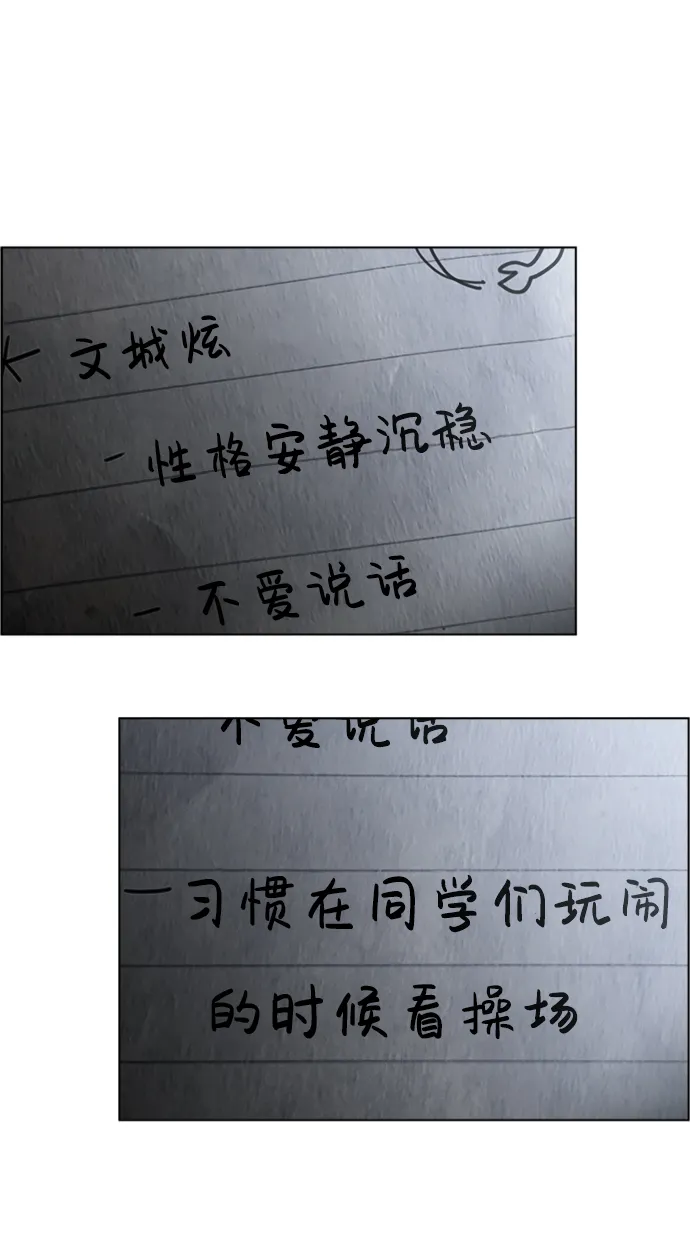 ← 文城炫
- 性格安静沉稳
- 不爱说话
不爱说话
- 习惯在同学们玩闹
的时候看操场